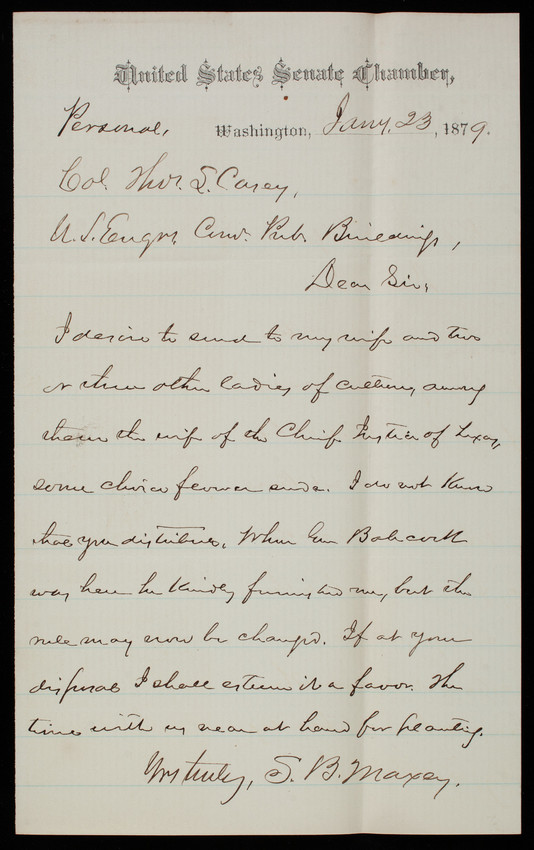 United States Senate Chamber,
Personal, Washington, Jany. 23, 1879.
Col. Thos. L. Casey,
U.S. Engrs, Comr. Pub. Buildings,
Dear Sir,
I desire to send to my wife and two
or three other ladies of culture, among
them the wife of the Chief Justice of Texas,
some choice flower seeds. I do not know
that you distribute. When Gen Babcock
was here he kindly furnished me, but the
rule may now be changed. If at your
disposal I shall esteem it a favor. The
time with us near at hand for planting.
Yrs truly, S. B. Maxey.